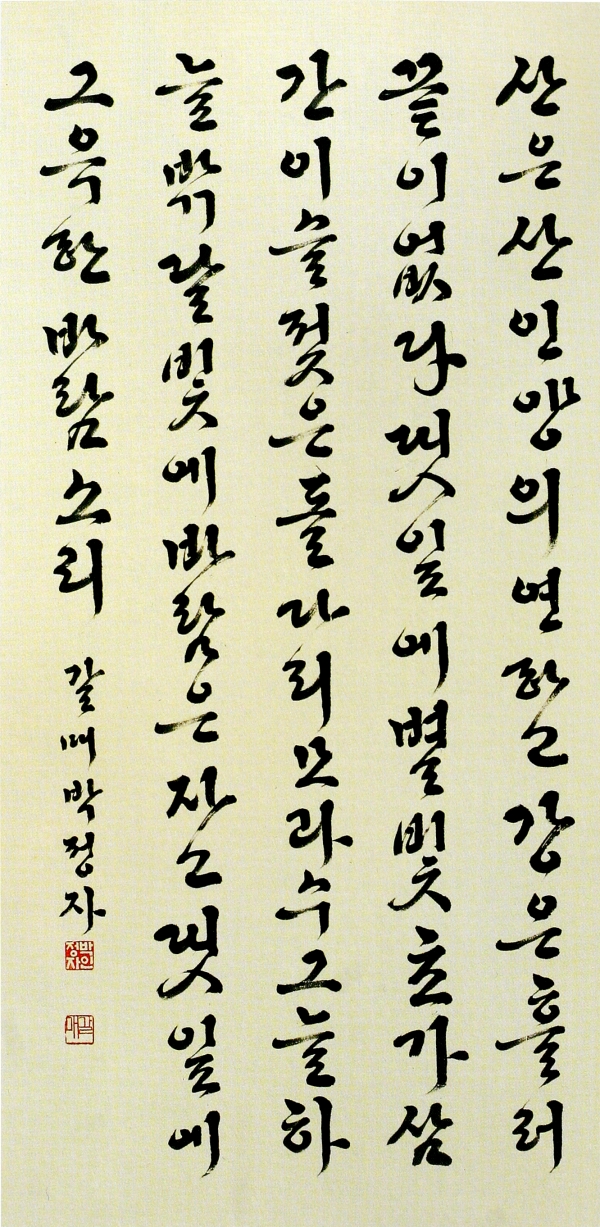 산은산인양의연하고강은흘러
끝이없다댓잎에별빛초가삼
간이슬젖은돌다리모과수그늘하
늘밖달빛에바람은자고댓잎에
그윽한바람소리 갈매박정자
박정자인
갈매